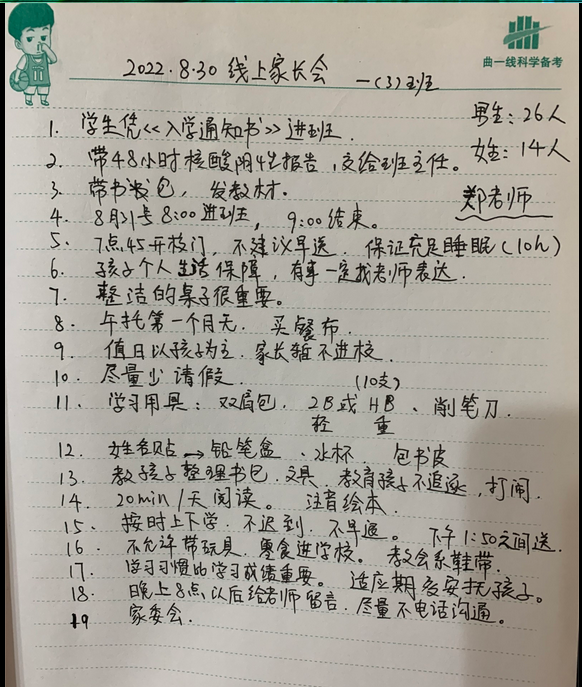 曲一线科学备考
2022.8.30 线上家长会 一(3)班
男生：26人
1. 学生凭《入学通知书》进班.
女生：14人
2. 带48小时核酸阴性报告，交给班主任。
郑老师
3. 带书包，发教材.
4. 8月31号 8:00进班，9:00结束。
5、7点45开校门，不建议早送. 保证充足睡眠(10h)
6. 孩子个人生活保障，有事一定找老师表达.
7. 整洁的桌子很重要。
8. 午托第一个月无. 买餐布.
9. 值日以孩子为主. 家长暂不进校.
10. 尽量少请假. (10支)
11. 学习用具：双肩包. 2B或HB、削笔刀.
轻 重
12. 姓名贴→铅笔盒、水杯. 包书皮
13. 教孩子整理书包.文具. 教育孩子不追逐，打闹.
14. 20min/天阅读。 注音绘本.
15、按时上下学.不迟到.不早退。 下午1:50之间送.
16、不允许带玩具、零食进学校。 教会系鞋带.
17. 学习习惯比学习成绩重要。 适应期多安抚孩子。
18. 晚上8点以后给老师留言.尽量不电话沟通。
19 家委会.